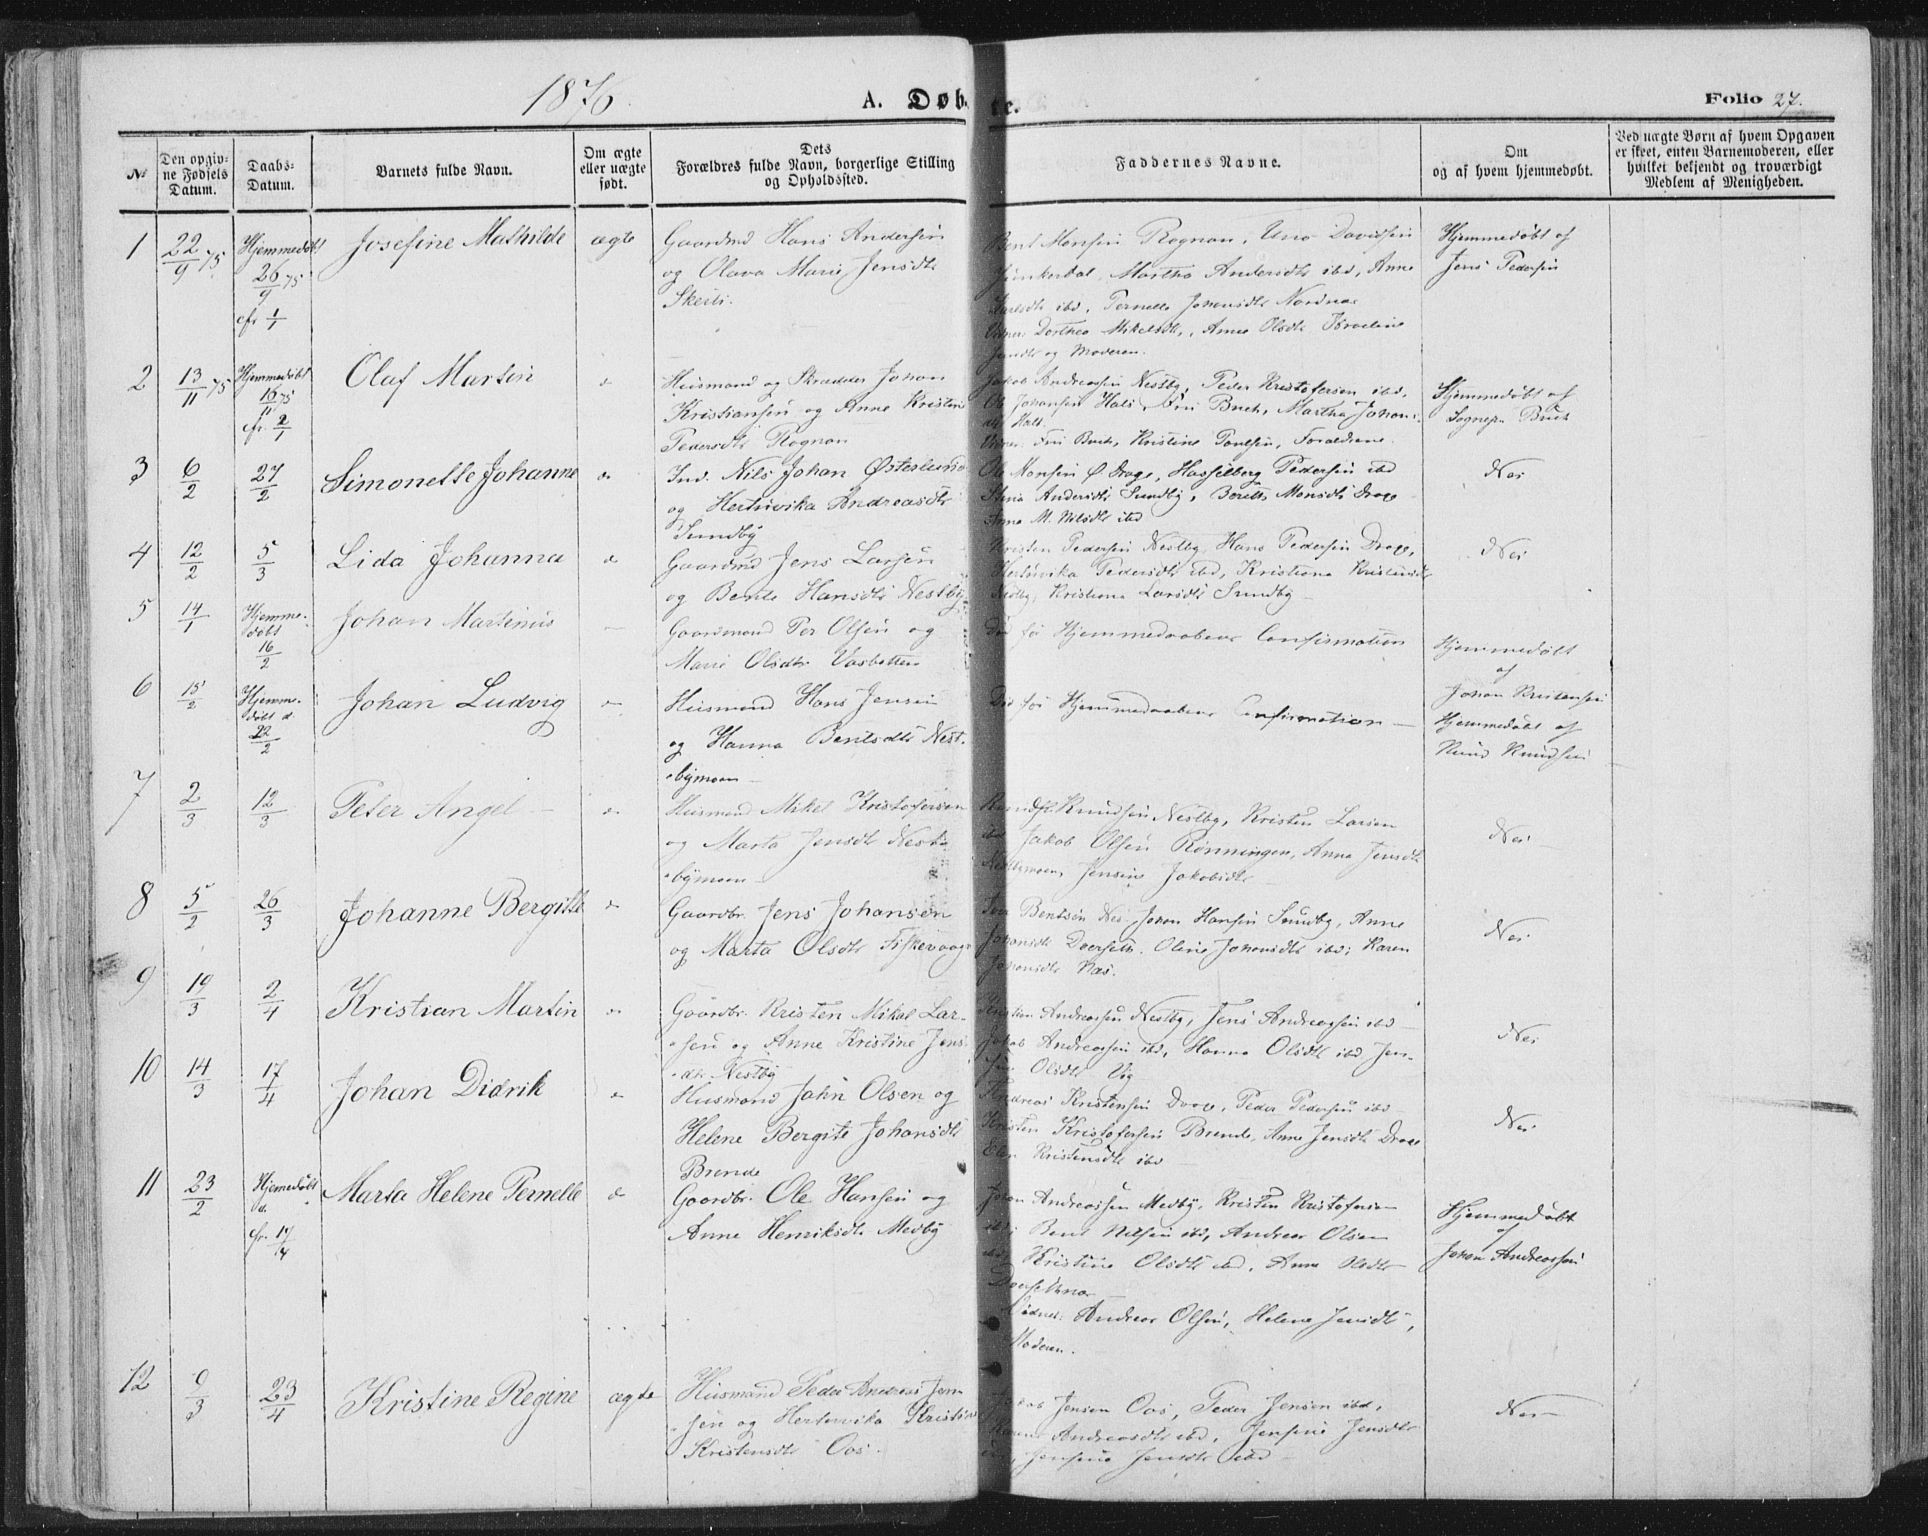 1876.
A. Døb
te.
Folio 27.
№
Den opgiv-
ne Fødsels
Datum.
Daabs-
Datum.
Barnets fulde Navn.
Om ægte
eller uægte
født.
Dets
Forældres fulde Navn, borgerlige Stilling
og Opholdssted.
Faddernes Navne.
Om
og af hvem hjemmedøbt.
Ved uægte Børn af hvem Opgaven
er skeet, enten Barnemoderen, eller
hvilket bekjendt og troværdigt
Medlem af Menigheden.
1
22/9 75
Hjemmedøbt
26/9 75
cfr 1/1
Josefine Mathilde
ægte
Gaardmd Hans Andersen
og Olava Marie Jensdtr
Bent Monsen Rognan, Uno Davidsen
Junkerdal, Martha Andersdtr ibd, Anne
ibd, Pernelle Johansdtr
Dorthea Mikelsdtr, Anne Olsdtr
og Moderen.
Hjemmedøbt af
Jens Pedersen
2
13/11 75
Hjemmedøbt
16/11 75
cfr. 2/1
Olaf Martin
Huusmand og Skrædder Johan
Kristiansen og Anne Kristine
Pedersdtr Rognan
Jakob Andreassen Nestby, Peder Kristofersen ibd,
Ole Johansen Hals, Fru Buch, Martha Johans-
dtr Hals.
Fru Buch, Kristine Poulsen, Forældrene.
Hjemmedøbt af
Sognepr. Buch
3
6/2
27/2
Simonette Johanne
Ind. Nils Johan Østerlund
og Hertuvika Andreasdtr
Sundby
Ole Monsen Ø. Drage, Hasselberg Pedersen ibd
Andersdtr Sundby, Berette Monsdtr Drage
Anna M. Nilsdtr ibd
Nei
4
12/2
5/3
Lida Johanna
Gaardmd Jens Larsen
og Bente Hansdtr Nestby
Kristen Pedersen Nestby, Hans Pedersen Drage,
Hertuvika Pedersdtr ibd, Kristiana Kristensdtr
Nestby, Kristiana Larsdtr Sundby
Nei
5
14/1
Hjemme-
døbt
16/2
Johan Martinus
Gaardmand Per Olsen og
Marie Olsdtr Vasbotten
Død før Hjemmedaabens Confirmation
Hjemmedøbt
af
Johan Kristensen
6
15/2
Hjemme-
døbt d
22/2
Johan Ludvig
Huusmand Hans Jensen
og Hanna Bentsdtr Nest-
bymoen
Død før Hjemmedaabens Confirmation
Hjemmedøbt af
Knud Knudsen
7
2/3
12/3
Peter Angel
Huusmand Mikel Kristofersen
og Marta Jensdtr Nest-
bymoen
Knudsen Nestby, Kristen Larsen
ibd Jakob Olsen Rønningen, Anna Jensdtr
Nestbymoen, Jensine Jakobsdtr
Nei
8
5/2
26/3
Johanne Bergitte
Gaardbr. Jens Johansen
og Marta Olsdtr Fiskevaag
Bentsen Nes, Johan Hansen Sundby, Anne
Johansdtr Olene Johansdtr ibd, Karen
Johansdtr Næs.
Nei
9
19/3
2/4
Kristian Martin
Gaardbr. Kristen Mikal Lar-
sen og Anne Kristine Jens-
dtr Nestby
Kristian Andreassen Nestby, Jens Andreassen ibd
Jakob Andreassen ibd, Hanna Olsdtr ibd, Jen-
sine Olsdtr Vig
Nei
10
14/3
17/4
Johan Didrik
Husmand John Olsen og
Helene Bergite Johansdtr
Brende
Andreas Kristensen Drage, Peder Pedersen ibd
Kristen Kristofersen Brende, Anne Jensdtr Drage
Elen Kristensdtr ibd
Nei
11
23/2
Hjemedøbt
d.
cfr. 17/4
Marta Helene Pernelle
Gaardbr. Ole Hansen og
Anne Henriksdtr Medby
Johan Andreassen Medby, Kristen Kristofersen
ibd, Bent Nilsen ibd, Andreas Olsen
ibd, Kristine Olsdtr ibd, Anne
Vidner: Andreas Olsen, Helene Jensdtr,
Moderen.
Hjemmedøbt
af
Johan Andreassen
12
9/3
23/4
Kristine Regine
ægte
Huusmand Peder Andreas Jen-
sen og Hertuvika Kristine
Kristensdtr Oos.
Jakob Jensen Oos, Peder Jensen ibd,
Andreasdtr ibd, Jensine Jensdtr
ibd, Jensine Jensdtr ibd
Nei